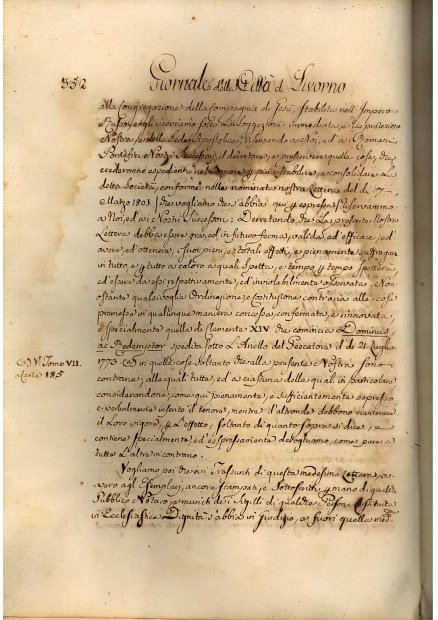 352
Giornale della Città di Livorno
alla Congregazione della Compagnia di Gesù, stabilita nell'Impero
Russo, e gli riceviamo sotto La Soggezione immediata, e la protezione
Nostra, e della Sede Apostolica; riservando a Noi, ed a i Romani
Pontefici Nostri Successori, il decretare, e prescrivere quelle cose, che
crederanno espedienti nel Signore p stabilire, e consolidare La
detta Società, conforme nella nominata nostra Lettera del dì 7
Marzo 1801 (che vogliamo che s'abbia qui p espressa) riservammo
a Noi, ed a i Nostri Successori: Decretando che La presente Nostra
Lettera debba essere ora, ed in futuro ferma, valida, ed efficace, ed
avere, ed ottenere, i suoi pieni, e totali effetti, e pienamente suffragare
in tutto, e p tutto a coloro a quali spetta, e tempo p tempo spetterà,
ed essere da essi respettivamente, ed inviolabilmente osservata. Non
ostante qualsivoglia Ordinazione, e Costituzione contraria alle cose
premesse in qualunque maniera concessa, confermata, e rinnovata
e specialmente quella di Clemente XIV. che comincia Dominus
ac Redemptor spedita sotto L'Anello del Pescatore il dì 21 Luglio
1773. (a) in quelle cose soltanto che alla presente Nostra sono
(a) V. Tomo VII.
a Carte 185
contrarie, alle quali tutte, ed a ciascuna delle quali in particolare
considerandone come qui pienamente, e sufficientemente espresso,
e verbalmente inserito il tenore, mentre d'altronde debbono mantenere
il Loro vigore, p L'effetto, soltanto di quanto sopra si dice,
contiene specialmente, ed espressamente deroghiamo, come pure a
tutte L'altre in contrario.
Vogliamo poi che a i Trasunti di questa medesima Lettera, o
vero agl'Esemplari, ancora stampati, e Sottoscritti p mano di qualche
Pubblico Notaro, e muniti dei Sigilli di qualche Persona costituita
in Ecclesiastica Dignità s'abbia in giudizio, e fuori quella med.